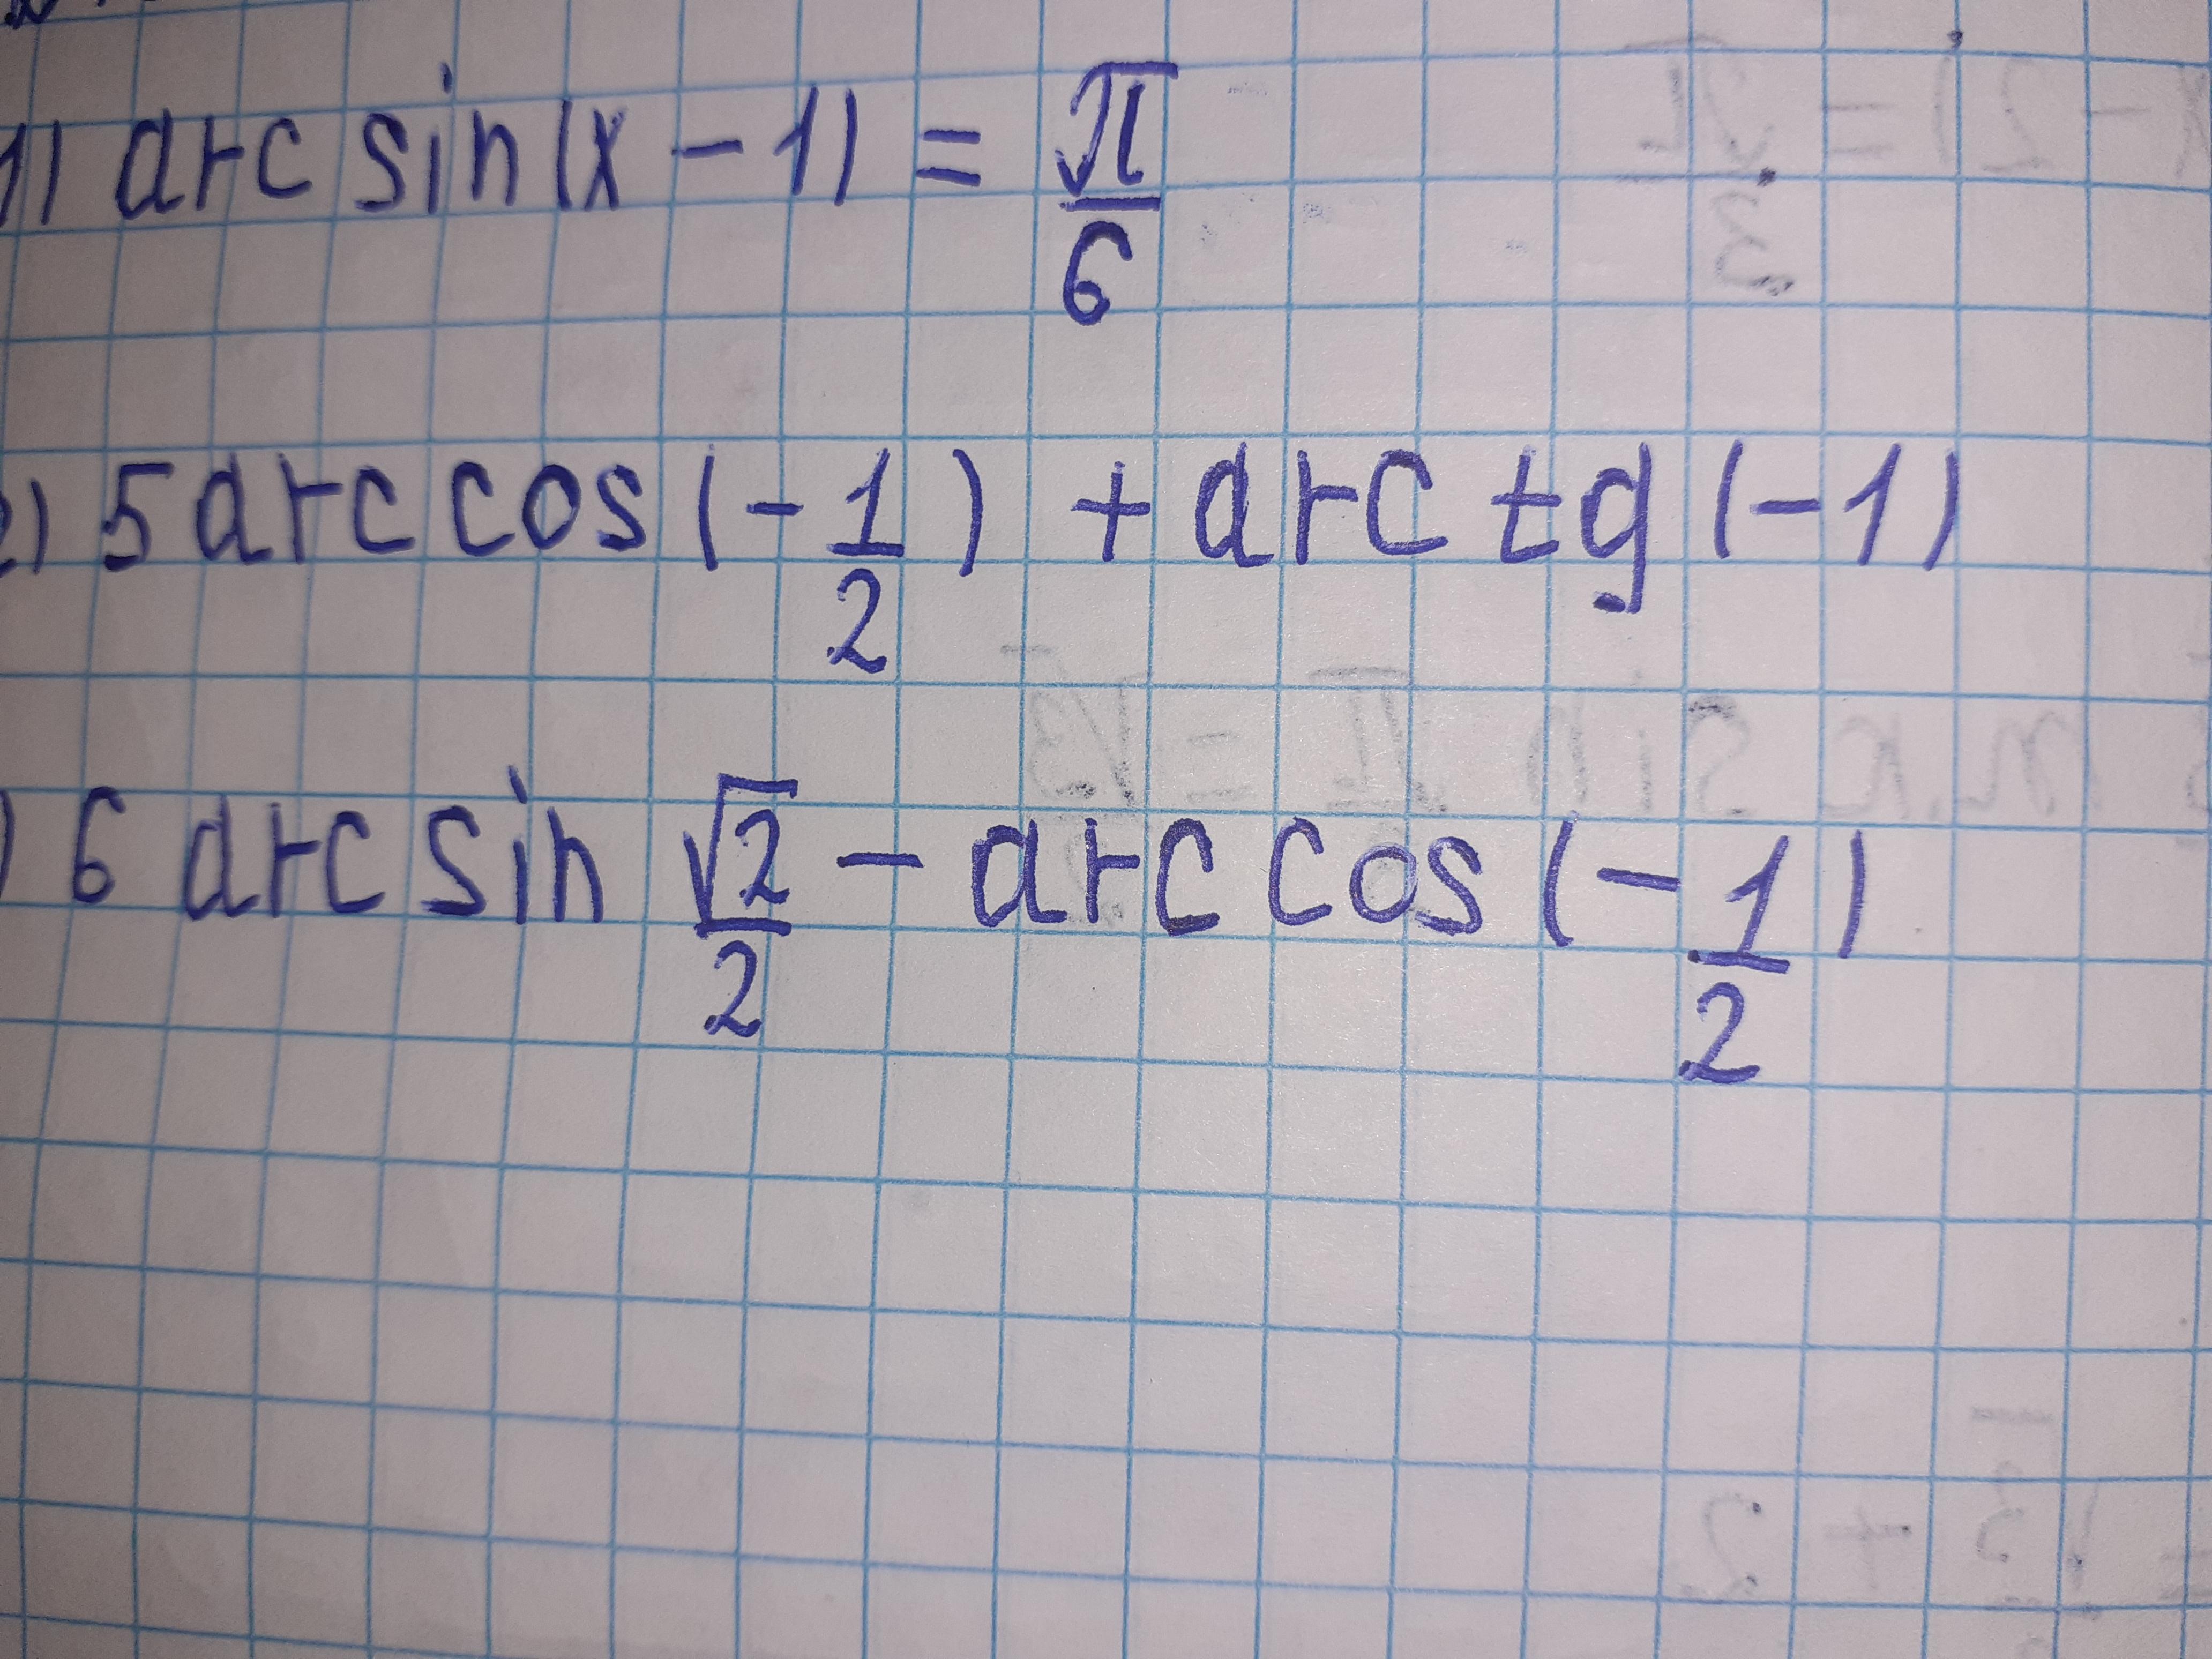 1) arc sin(x - 1) = π/6
2) 5 arc cos(-1/2) + arc tg(-1)
) 6 arc sin √2/2 - arc cos(-1/2)